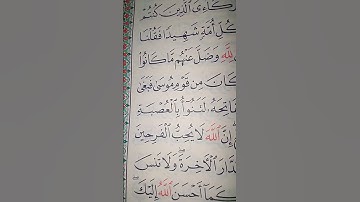 ٱلَّذِينَ كُنتُمْ
كُلِّ أُمَّةٍ شَهِيدًا فَقُلْنَا
لِلَّهِ وَضَلَّ عَنْهُم مَّا كَانُوا۟
كَانَ مِن قَوْمِ مُوسَىٰ فَبَغَىٰ
لَتَنُوٓأُ بِٱلْعُصْبَةِ
إِنَّ ٱللَّهَ لَا يُحِبُّ ٱلْفَرِحِينَ
ٱلدَّارَ ٱلْأَخِرَةَ ۖ وَلَا تَنسَ
كَمَآ أَحْسَنَ ٱللَّهُ إِلَيْكَ ۖ